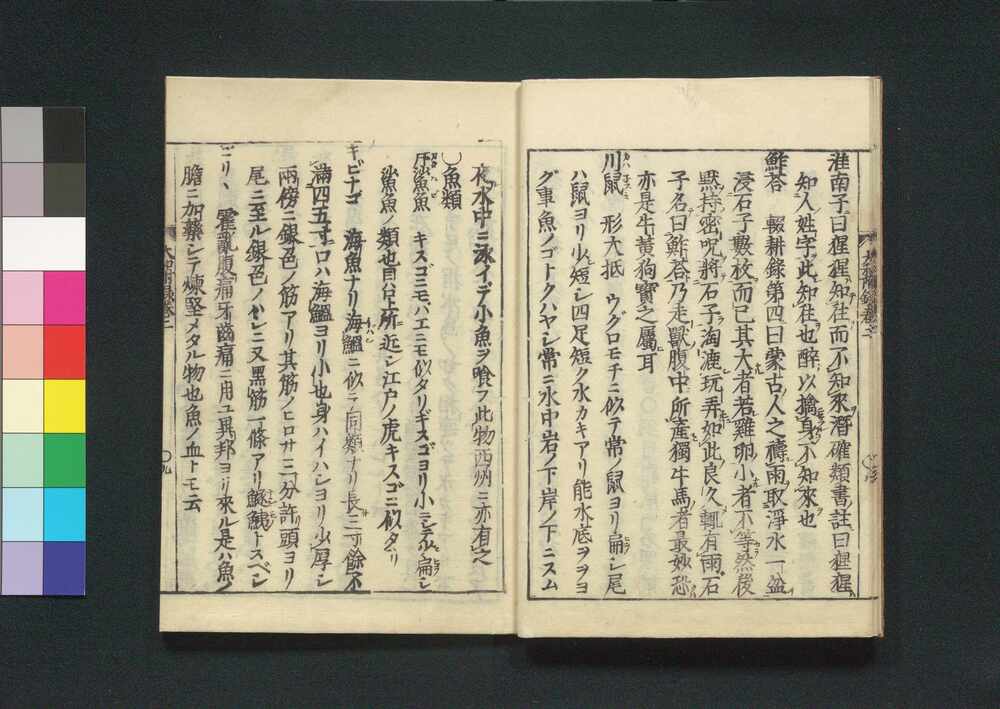 淮南子曰猩猩知往而不知來潛確類書註曰猩猩
知人姓字此知往也醉以擒身不知來也
鮓荅　輟耕錄第四曰蒙古人之禱雨取淨水一盆
浸石子數枚而已其大者若雞卵小者不等然後
黙持密呪將石子淘漉玩弄如此良久輒有雨石
子名曰鮓荅乃走獸腹中所產獨牛馬者最妙恐
亦是牛黃狗寶之屬耳
川鼠　形大抵ウグロモチニ似テ常ノ鼠ヨリ扁シ尾
ハ鼠ヨリ少短シ四足短ク水カキアリ能水底ヲヲヨ
グ事魚ノゴトクハヤシ常ニ水中岩ノ下岸ノ下ニスム
夜水中ニ泳イデ小魚ヲ喰フ此物西州ニ亦有之
〇魚類
キスゴニモハエニモ似タリキスゴヨリ小ニシテ少扁シ
鯊魚ノ類也
所近シ江戸ノ虎キスゴニ似タリ
キビナゴ　海魚ナリ海鰮ニ似テ同類ナリ長三寸餘不
滿四五寸口ハ海鰮ヨリ小也身ハイハシヨリ少厚シ
兩傍ニ銀色ノ筋アリ其筋ノヒロサ三分許頭ヨリ
尾ニ至ル銀色ノ ニ又黑筋一條アリ トスベシ
霍亂腹痛牙齒痛ニ用ユ異邦ヨリ來ル是ハ魚ノ
膽ニ加藥シテ煉堅メタル物也魚ノ血トモ云